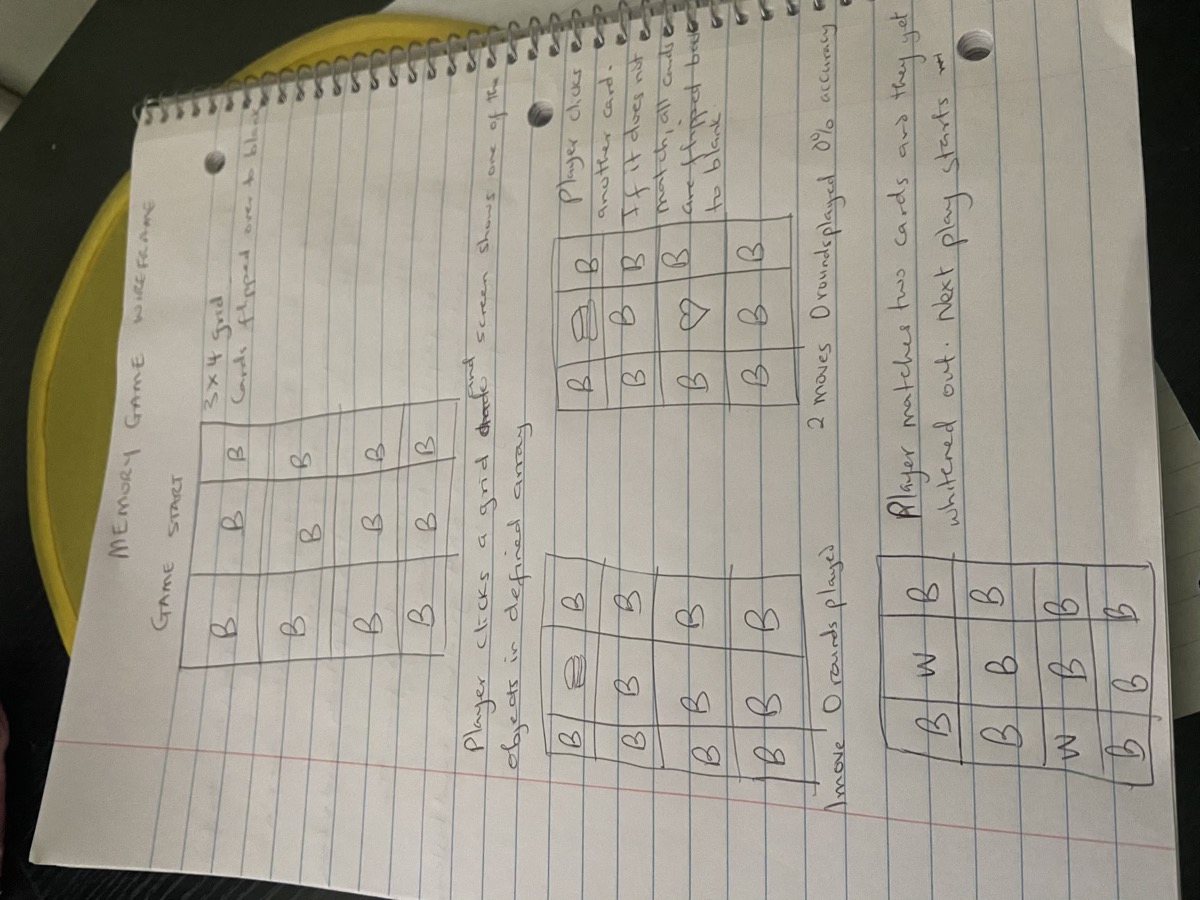 MEMORY GAME WIREFRAME
GAME START
B B B
B B B
B B B
B B B
3x4 grid
Cards flipped over to blank
Player clicks a grid and screen shows one of the
objects in defined array
B B
B B B
B B B
B B B
1 move 0 rounds played
B B
B B B
B B
B B B
Player clicks
another card.
If it does not
match, all cards
are flipped back
to blank.
2 moves 0 rounds played 0% accuracy
B W B
B B B
W B B
B B B
Player matches two cards and they get
whitened out. Next play starts